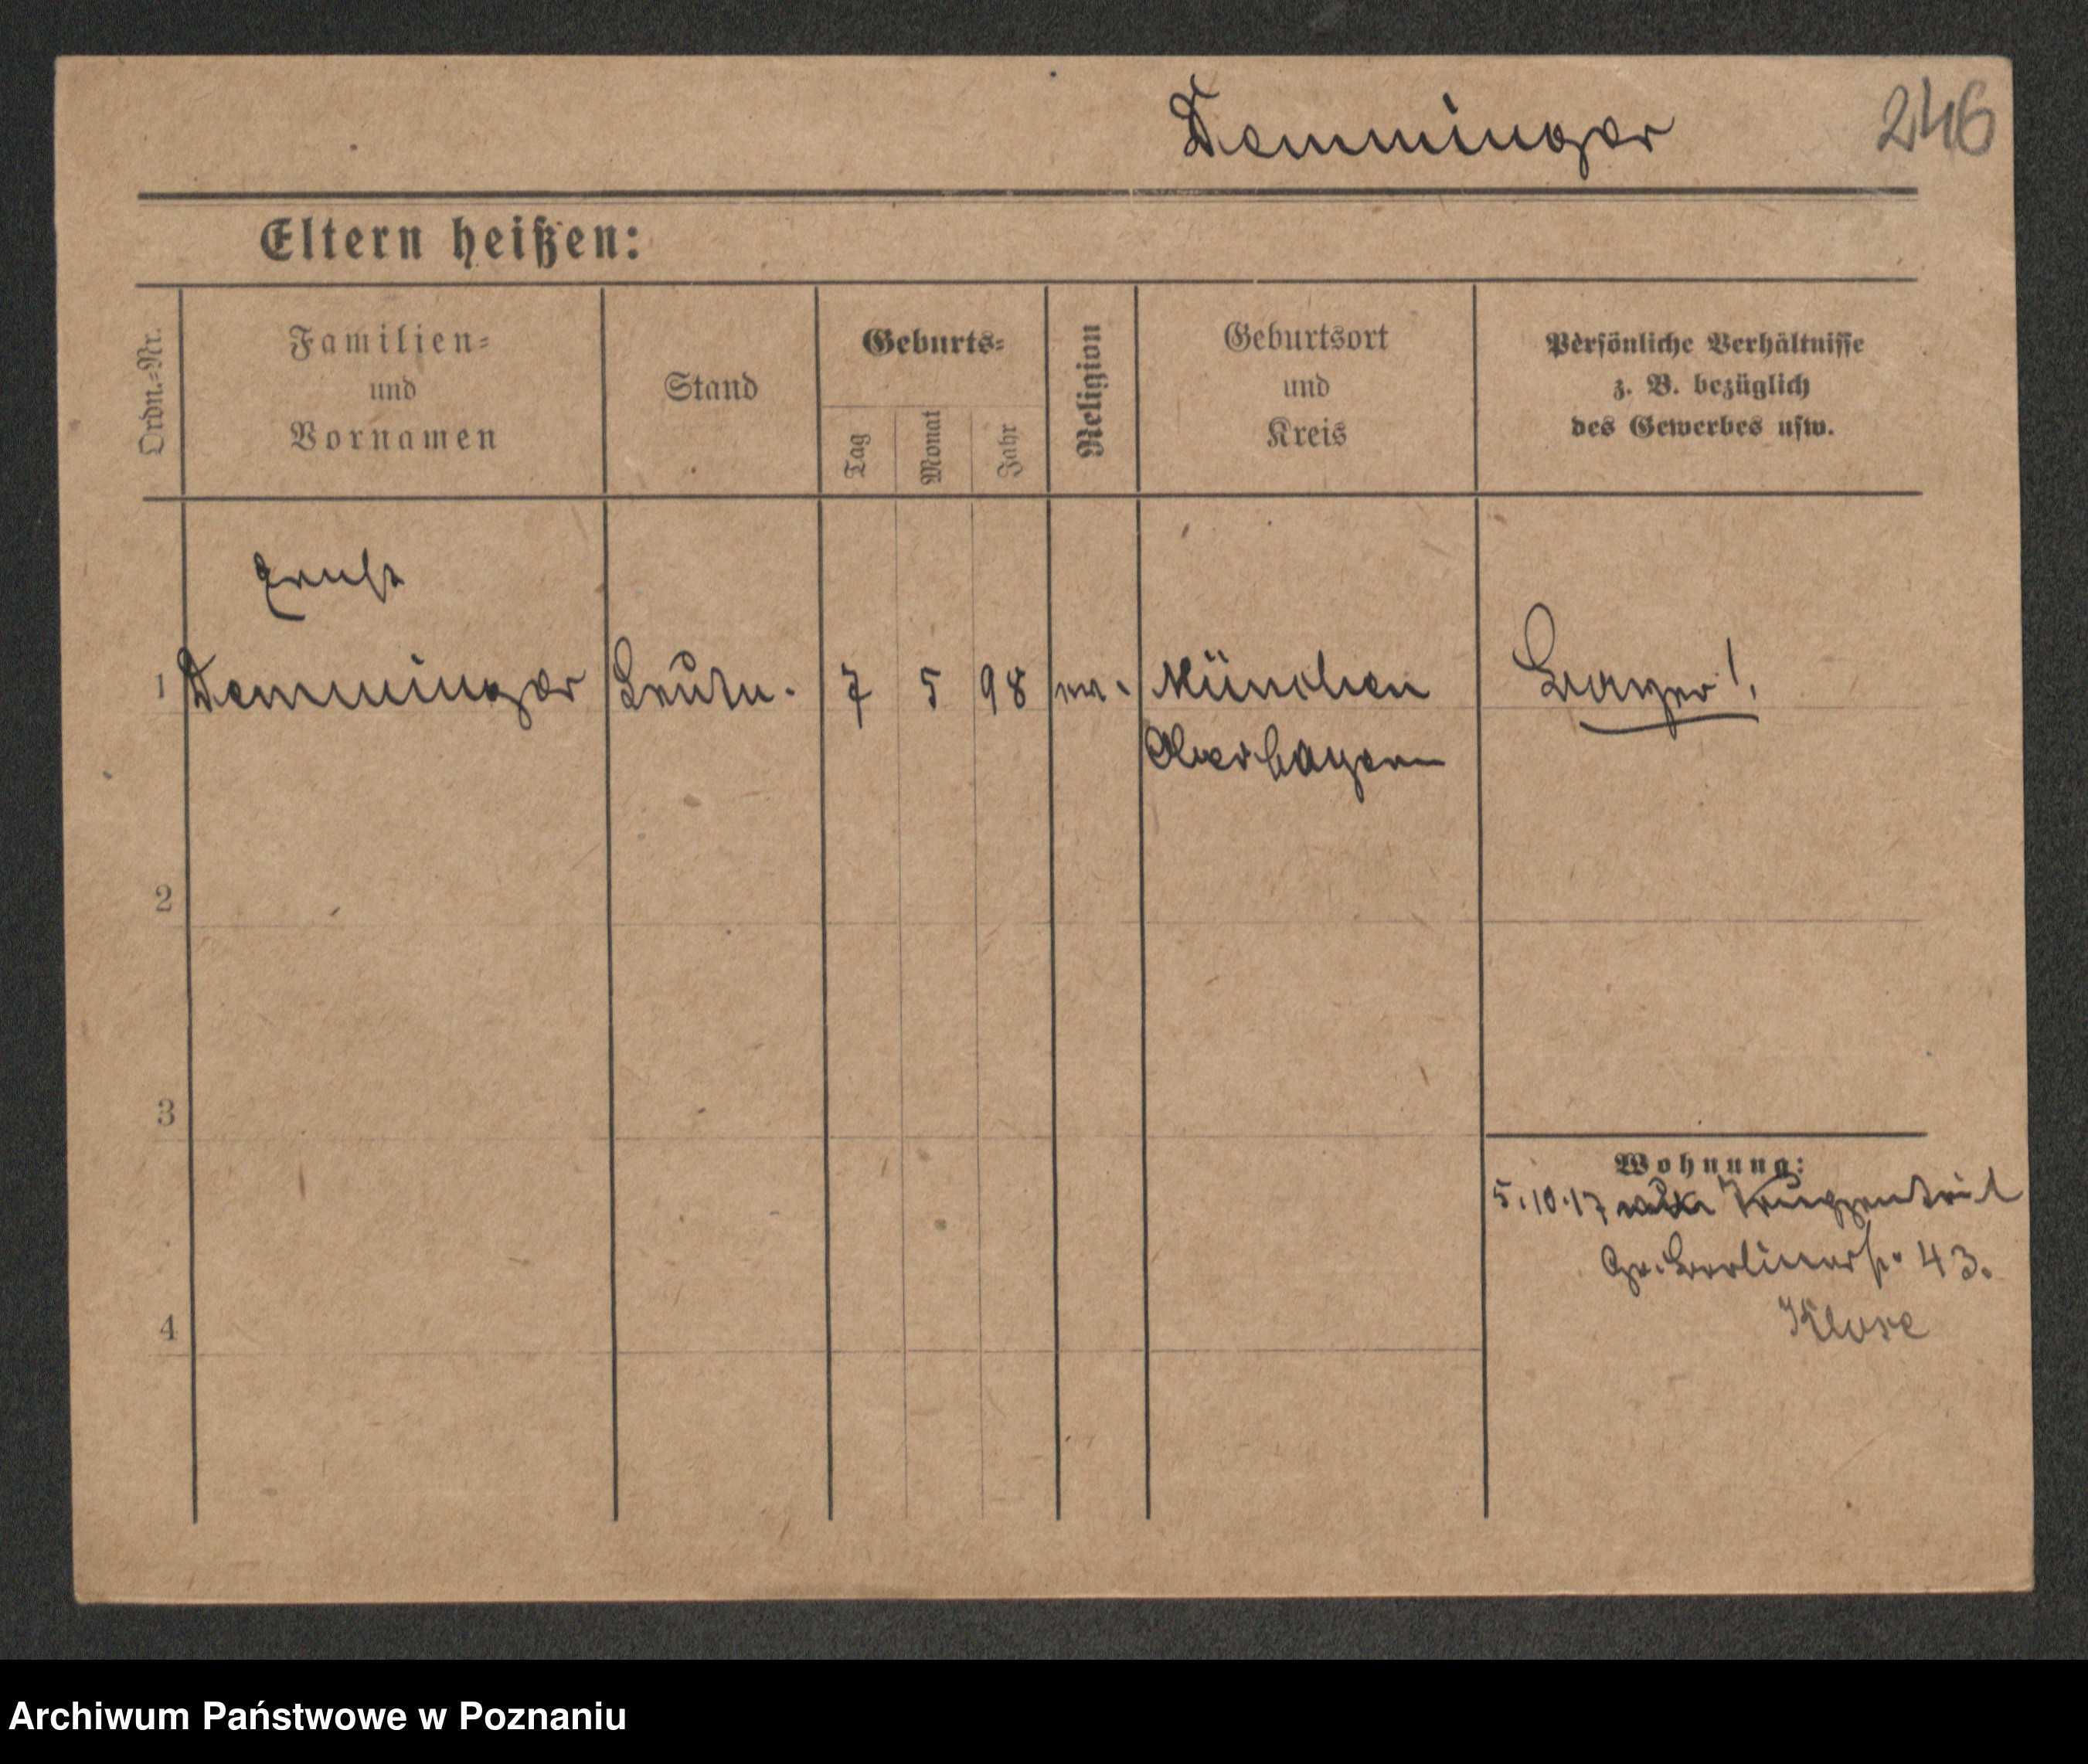 Demminger 246
Eltern heißen:
Ordn.-Nr.
Familien-
und
Vornamen
Stand
Geburts-
Tag
Monat
Jahr
Religion
Geburtsort
und
Kreis
Persönliche Verhältnisse
z. B. bezüglich
des Gewerbes usw.
Ernst
1 Demminger Leutn. 7 5 98 München Bayer!
Oberbayern
2
3
4
Wohnung:
5.10.17
Gr. Berlinerstr. 43.
Klose
Archiwum Państwowe w Poznaniu